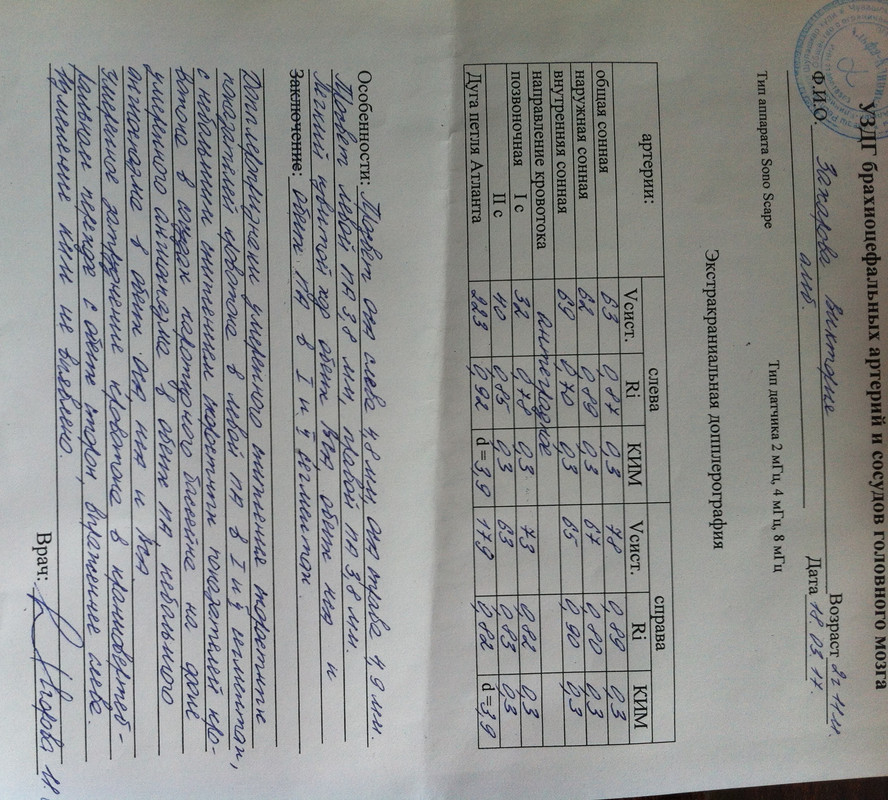 УЗДГ брахиоцефальных артерий и сосудов головного мозга
Ф.И.О. Захарова Виктория Возраст 2г 11м.
амб. Дата 18.03.17.
Тип аппарата Sono Scape Тип датчика 2 мГц, 4 мГц, 8 мГц
Экстракраниальная допплерография
артерии: слева справа
Vсист. Ri КИМ Vсист. Ri КИМ
общая сонная 63 0,87 0,3 78 0,89 0,3
наружная сонная 62 0,89 0,3 67 0,80 0,3
внутренняя сонная 69 0,70 0,3 65 0,90 0,3
направление кровотока антеградное
позвоночная I с 32 0,78 0,3 73 0,82 0,3
II с 40 0,85 0,3 63 0,83 0,3
Дуга петля Атланта 223 0,92 d=3,9 179 0,82 d=3,9
Особенности: Диаметр оса слева 4,8 мм, оса справа 4,9 мм.
Диаметр левой ПА 3,8 мм, правой ПА 3,8 мм.
Легкий извитой ход обеих ВСА, обеих НСА и
Заключение: обеих ПА в I и V сегментах.
Допплерпризнаки умеренного снижения
показателей кровотока в левой ПА в I и V сегментах,
с небольшим снижением показателей кро-
вотока в сосудах каротидного бассейна на фоне
умеренного ангиоспазма в обеих ПА, небольшого
ангиоспазма в обеих ОСА, НСА и ВСА.
Умеренное затруднение кровотока в краниовертеб-
ральном переходе с обеих сторон, выраженнее слева.
Утолщение КИМ не выявлено.
Врач: